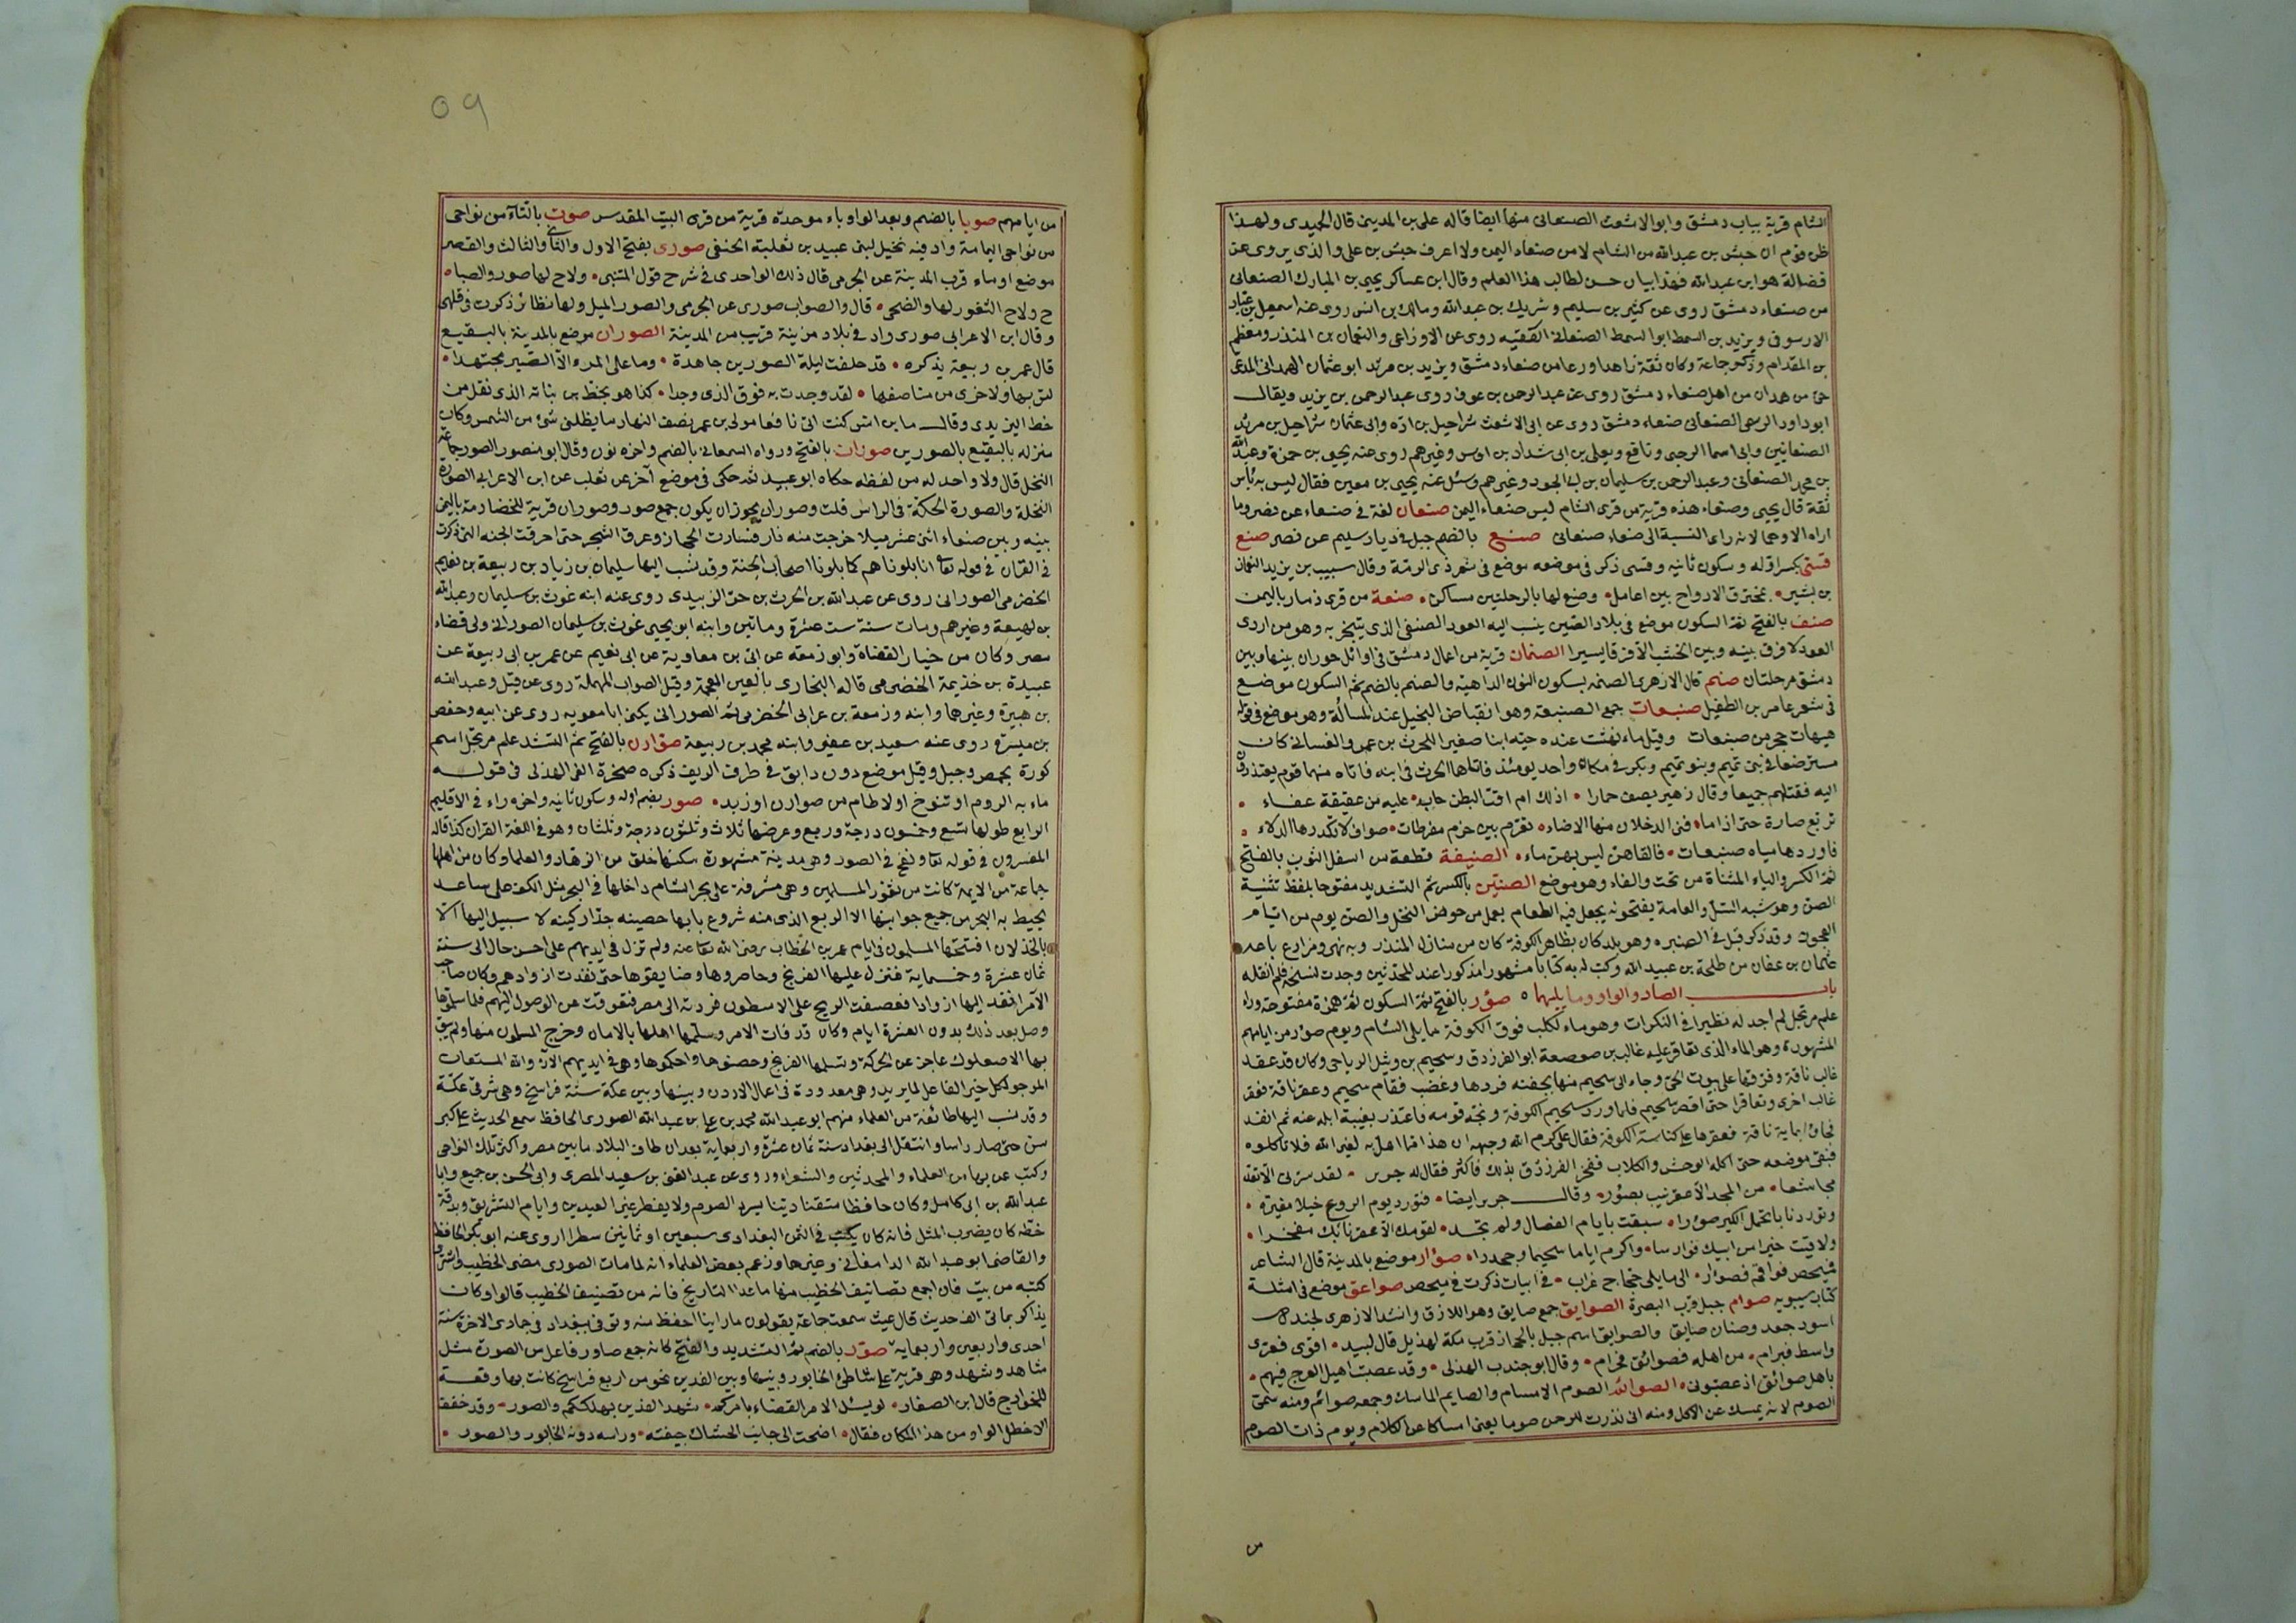 الشام قرية بباب دمشق وابو الاشعث الصنعانى منها ايضا قاله على بن المدينى قال الحميدى ولهذا
ظن قوم ان حبش بن عبد الله من الشام لا من صنعاء اليمن ولا اعرف حبش بن على والذى يروى عن
فضالة هو ابن عبد الله فهذا بيان حسن لطالب هذا العلم وقال ابن عساكر يحيى بن المبارك الصنعانى
من صنعاء دمشق روى عن كثير بن سليم وشريك بن عبد الله ومالك بن انس روى عنه اسمعيل بن عياد
الارسوفى ويزيد بن السمط ابو السمط الصنعانى الفقيه روى عن الاوزاعى والنعمان بن المنذر ومعظم
بن المقدام وذكر جماعة وكان ثقة زاهدا ورعا من صنعاء دمشق ويزيد بن مرثد ابو عثمان الهمدانى المدعى
حى من همدان من اهل صنعاء دمشق روى عن عبد الرحمن بن عوف روى عبد الرحمن بن يزيد ويقال
ابو داود الرحبى الصنعانى صنعاء دمشق روى عن ابى الاشعث شراحيل بن اده وابى عثمان شراحيل بن مرثد
الصنعانيين وابى اسما الرحبى ونافع ويعلى بن ابى شداد بن اوس وغيرهم روى عنه يحيى بن حمزة وعبد الله
بن محمد الصنعانى وعبد الرحمن بن سليمان بن ابى الجود وغيرهم وسئل عنه يحيى بن معين فقال ليس به بأس
ثقة قال يحيى وصنعاء هذه قرية من قرى الشام ليس صنعاء اليمن صنعان لغة فى صنعاء عن نصر وما
اراه الا وهما لانه راى النسبة الى صنعاء صنعانى صنع بالضم جبل فى ديار سليم عن نصر صنع
قسى بكسر اوله وسكون ثانيه وقسى ذكر فى موضعه موضع فى شعر ذى الرمة وقال سبيب بن يزيد النعمان
بن بشير بمخترق الارواح بين اعامل وصنع لها بالرحلتين مساكن صنعة من قرى ذمار باليمن
صنف بالفتح ثم السكون موضع فى بلاد الصين ينسب اليه العود الصنفى الذى يتبخر به وهو من اردى
العود لا فرق بينه وبين الخشب الا فرقا يسيرا الصنمان قرية من اعمال دمشق فى اوائل حوران بينها وبين
دمشق مرحلتان صنم قال الازهرى الصنمه بسكون النون الداهية والصنم بالضم ثم السكون موضع
فى شعر عامر بن الطفيل صنيعات جمع الصنيعة وهو انقباض البخيل عند المسالة وهو موضع فى قوله
هيهات حجر من صنيعات وقيل ماء نهشت عنده حيه ابنا صغيرا للحرث بن عمرو الغسانى كان
مسترضعا فى بنى تميم وبنو تميم وبكر فى مكان واحد يومئذ فاتاها الحرث فى ابنه فاتاه منها قوم يعتذرون
اليه فقتلهم جميعا وقال زهير يصف حمارا اذلك ام اقب البطن جابه عليه من عقيقة عفاء
تربع صارة حتى اذا ما فنى الدخلان منها الاضاء نعرم بين خرم مفرطات صواف لا تكدرها الدلاء
فاوردها مياه صنيعات فالفاهن ليس بهن ماء الصنيفة قطعة من اسفل الثوب بالفتح
ثم الكسر والياء المثناة من تحت والفاء وهو موضع الصنين بالكسر ثم التشديد مفتوحا بلفظ تثنية
الصن وهو شبه السل والعامة يفتحونه يجعل فيه الطعام يعمل من خوص النخل والصن يوم من ايام
العجوز وقد ذكر قبل فى الصنبره وهو بلد كان بظاهر الكوفة كان من منازل المنذر وبه نهر ومزارع باعه
عثمان بن عفان من طلحة بن عبيد الله وكتب له به كتابا مشهورا مذكورا عند المحدثين وجدت لنسخته فلم انقله
باب الصاد والواو وما يليهما صؤر بالفتح ثم السكون ثم همزة مفتوحة وراء
علم مرتجل لم اجد له نظيرا فى النكرات وهو ماء لكلب فوق الكوفة مما يلى الشام ويوم صؤر من ايامهم
المشهورة وهو الماء الذى تعاقر عليه غالب بن صعصعة ابو الفرزدق وسحيم بن وثيل الرياحى وكان قد عقد
غالب ناقة وفرقها على بيوت الحى وجاء الى سحيم منها بجفنه فردها وغضب فقام سحيم وعقر ناقة فعقر
غالب اخرى وتعاقرا حتى اقصر سحيم فلما ورد سحيم الكوفة وبخه قومه فاعتذر بغيبة ابله عنه ثم انفذ
فجاؤا بماية ناقة فعقرها على كناسة الكوفة فقال على كرم الله وجهه ان هذا مما اهل به لغير الله فلا تاكلوه
فبقى موضعه حتى اكله الوحش والكلاب ففخر الفرزدق بذلك فاكثر فقال له جرير لقد سرنى الا تعد
مجاشعا من المجد الا عقر نيب بصؤر وقال جرير ايضا فنورد يوم الروع خيلا مغيرة
وتوردنا باتحمل الكير صؤرا سبقت بايام الفصال ولم تجد لقومك الا عقر نابك مفخرا
ولاقيت خيرا من ابيك فوارسا واكرم اياما سحيما وجحدرا صؤار موضع بالمدينة قال الشاعر
فميحص فواقم فصوار الى ما يلى حجاج غراب فى ابيات ذكرت فى ميحص صواعق موضع فى امثلة
كتاب سيبويه صوام جبل قرب البصرة الصوايق جمع صايق وهو اللازق وانشد الازهرى لجندل
اسود جعد وصنان صايق والصوايق اسم جبل بالحجاز قرب مكة لهذيل قال لبيد اقوى فعرى
واسط فبرام من اهله فصوائق فخزام وقال ابو جندب الهذلى وقد عصبت اهل العرج فيهم
باهل صوائق اذ عصبونى الصوائم الصوم الامسام والصايم الماسك وجمعه صوائم ومنه سمى
الصوم لانه يمسك عن الاكل ومنه انى نذرت للرحمن صوما يعنى امساكا عن الكلام ويوم ذات الصوم
من
٥٩
من ايامهم صوبا بالضم وبعد الواو باء موحدة قرية من قرى البيت المقدس صوت بالتاء من نواحى
من نواحى اليمامة واد فيه نخيل لبنى عبيد بن ثعلبة الحنفى صورى بفتح الاول والثانى والثالث والقصر
موضع او ماء قرب المدينة عن الجرمى قال ذلك الواحدى فى شرح قول المتنبى ولاح لها صور والصباه
ح ولاح الثغور لها والضحى قال والصواب صورى عن الجرمى والصور الميل ولها نظائر ذكرت فى قلهى
وقال ابن الاعرابى صورى واد فى بلاد مزينة قريب من المدينة الصوران موضع بالمدينة بالبقيع
قال عمر بن ربيعة يذكره قد حلفت ليلة الصورين جاهدة وما على المرء الا الصبر مجتهدا
لترب‍ها ولاخرى من مناصفها لقد وجدت به فوق الذى وجدا كذا هو بخط بن نباته الذى نقل من
خط اليزيدى وقال مالك بن انس كنت اتى نافعا مولى بن عمر نصف النهار ما يظلنى شئ من الشمس وكان
منزله بالبقيع بالصورين صوران بالفتح ورواه السمعانى بالضم واخره نون وقال ابو منصور الصور جماعة
النخل قال ولا واحد له من لفظه حكاه ابو عبيد ثم حكى فى موضع آخر عن ثعلب عن ابن الاعرابى الصورة
النخلة والصورة الحكة فى الراس قلت وصوران يجوز ان يكون جمع صور وصوران قرية للحضارمة باليمن
بينه وبين صنعاء اثنى عشر ميلا خرجت منه نار فسارت الحجاز وعرق الشجر حتى احرقت الجنه التى ذكرت
فى القرآن فى قوله تعا انا بلوناهم كما بلونا اصحاب الجنة وقد نسب اليها سليمان بن زياد بن ربيعة بن نعيم
الحضرمى الصورانى روى عن عبد الله بن الحرث بن جز الزبيدى روى عنه ابنه غوث بن سليمان وعبد الله
بن لهيعة وغيرهم ومات سنة ست عشرة وماتين وابنه ابو يحيى غوث بن سليمان الصورانى ولى قضاء
مصر وكان من خيار القضاة وابو زمعه عن ابى بن معاوية عن ابى نعيم عن عمر بن ابى ربيعة عن
عبيدة بن خذيمة الحضرمى قاله البخارى بالغين المعجمة وقيل الصواب المهملة روى عن قيل وعبد الله
بن هبيرة وغيرهما وابنه وزمعة بن عرابى الحضرمى ثم الصورانى يكنى ابا معويه روى عن ابيه وحفص
بن ميسرة روى عنه سعيد بن عفير وابنه محمد بن ربيعة صوران بالفتح ثم التشد علم مرتجل اسم
كورة بحمص وجبل وقيل موضع دون دابق فى طرف الريف ذكره صخرة الغى الهذلى فى قوله
ماء به الروم او تنوخ او لاطام من صوارن او زبد صور بضم اوله وسكون ثانيه واخره راء فى الاقليم
الرابع طولها تسع وخمسون درجة وربع وعرضها ثلاث وثلثون درجة وثلثان وهو فى اللغة القران كذا قاله
المفسرون فى قوله تعا ونفخ فى الصور وهى مدينة مشهورة سكنها خلق من الزهاد والعلما وكان من اهلها
جماعة من الايمة كانت من ثغور المسلمين وهى مشرفة على بحر الشام داخلها فى البحر مثل الكف على ساعد
يحيط به البحر من جميع جوانبها الا الربع الذى منه شروع بابها حصينه جدا ركينه لا سبيل اليها الا
بالخذلان افتتحها المسلمون فى ايام عمر بن الخطاب رضى الله تعا عنه ولم تزل فى ايديهم على احسن حال الى سنة
ثمان عشرة وخمسماية فنزل عليها الفرنج وحاصروها وضايقوها حتى نفدت ازوادهم وكان صاحب
الآمر انفذ اليها ازوادا فعصفت الريح على الاسطول فردته الى مصر فتعوقت عن الوصول اليهم فلما سلموها
وصل بعد ذلك بدون العشرة ايام وكان قد فات الامر وسلمها اهلها بالامان وخرج المسلمون منها ولم يبق
بها الا صعلوك عاجز عن الحركة وتسلمها الفرنج وحصنوها واحكموها وهى فى ايديهم الآن والله المستعان
المرجو لكل خير الفاعل لما يريد وهى معدودة فى اعمال الاردن وبينها وبين عكة ستة فراسخ وهى شرقى عكة
وقد نسب اليها طائفة من العلماء منهم ابو عبد الله محمد بن على بن عبد الله الصورى الحافظ سمع الحديث على كبر
سن حتى صار راسا وانتقل الى بغداد سنة ثمان عشرة واربعماية بعد ان طاف البلاد ما بين مصر واكثر تلك النواحى
وكتب عن بها من العلماء والمحدثين والشعراء وروى عن عبد الغنى بن سعيد المصرى وابى الحسن بن جميع وابا
عبد الله بن ابى كامل وكان حافظا متقنا دينا يسرد الصوم ولا يفطر غير العيدين وايام التشريق وبدقة
خطه كان يضرب المثل فانه كان يكتب فى الثمن البغدادى سبعين او ثمانين سطرا روى عنه ابو بكر الحافظ
والقاضى ابو عبد الله الدامغانى وغيرها وزعم بعض العلماء انه لما مات الصورى مضى الخطيب واشترى
كتبه من بيت فان اجمع تصانيف الخطيب منها ما عدا التاريخ فانه من تصنيف الخطيب قالوا وكان
يذاكر بماتى الف حديث قال غيث سمعت جماعة يقولون ما راينا احفظ منه وتوفى ببغداد فى جمادى الاخرة سنة
احدى واربعين واربعماية صوّر بالضم ثم التشديد والفتح كانه جمع صاور فاعل من الصورة مثل
شاهد وشهد وهو قرية على شاطئ الخابور وبينها وبين الفدين نحو من اربع فراسخ كانت بها وقعة
للخوارج قال ابن الصفار لو يسئل الامر القضاء بامركم شهد الفدين بهلككم والصور وقد خفف
الاخطل الواو من هذا المكان فقال اضحت الى جانب الحشاك جيفته وراسه دونه الخابور والصور